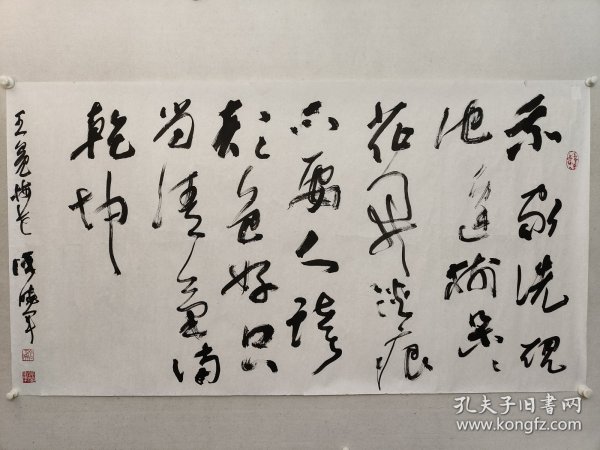 家洗砚
池边树朵々
花开淡痕
不要人夸
颜色好只
留清气满
乾坤
王冕梅花
孔夫子旧书网
www.kongfz.com